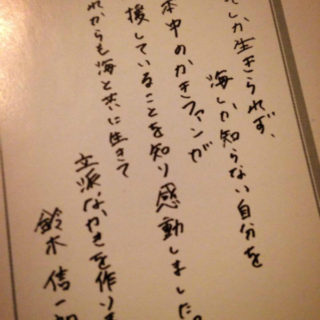 しか生きられず、
海しか知らない自分を
本中のかきファンが
援していることを知り感動しました。
れからも海と共に生きて
立派なかきを作りま
鈴木信一郎